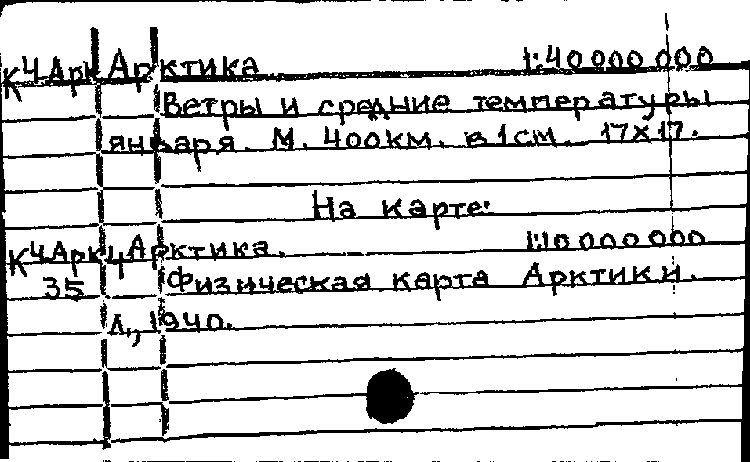 К4Арк Арктика 1:40 000 000
Ветры и средние температуры
января. М. 400км. в 1см. 17х17.
На карте:
К4Арк4 Арктика. 1:10 000 000
35 Физическая карта Арктики.
Л., 1940.